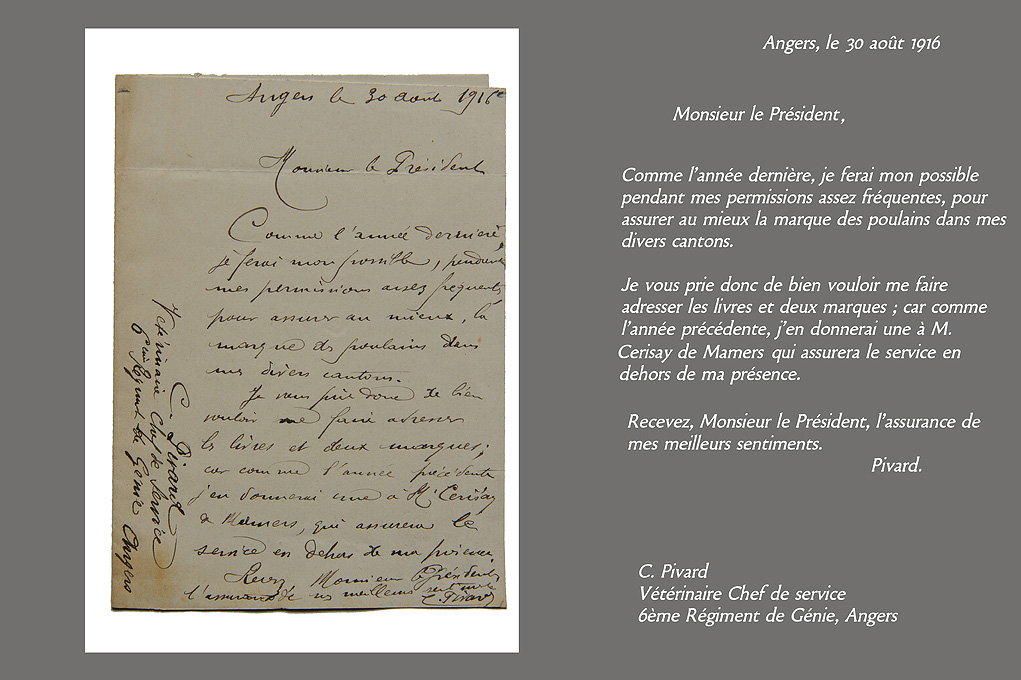 Angers le 30 août 1916
Monsieur le Président
Comme l'année dernière
je ferai mon possible, pendant
mes permissions assez fréquentes
pour assurer au mieux, la
marque des poulains dans
mes divers cantons.
Je vous prie donc de bien
vouloir me faire adresser
les livres et deux marques;
car comme l'année précédente
j'en donnerai une à Mr Cerisay
de Mamers, qui assurera le
service en dehors de ma présence
Recevez Monsieur le Président
l'assurance de mes meilleurs sentiments
C. Pivard
C. Pivard
Vétérinaire Chef de Service
6ème Régiment de Génie Angers
Angers, le 30 août 1916
Monsieur le Président,
Comme l'année dernière, je ferai mon possible
pendant mes permissions assez fréquentes, pour
assurer au mieux la marque des poulains dans mes
divers cantons.
Je vous prie donc de bien vouloir me faire
adresser les livres et deux marques ; car comme
l'année précédente, j'en donnerai une à M.
Cerisay de Mamers qui assurera le service en
dehors de ma présence.
Recevez, Monsieur le Président, l'assurance de
mes meilleurs sentiments.
Pivard.
C. Pivard
Vétérinaire Chef de service
6ème Régiment de Génie, Angers